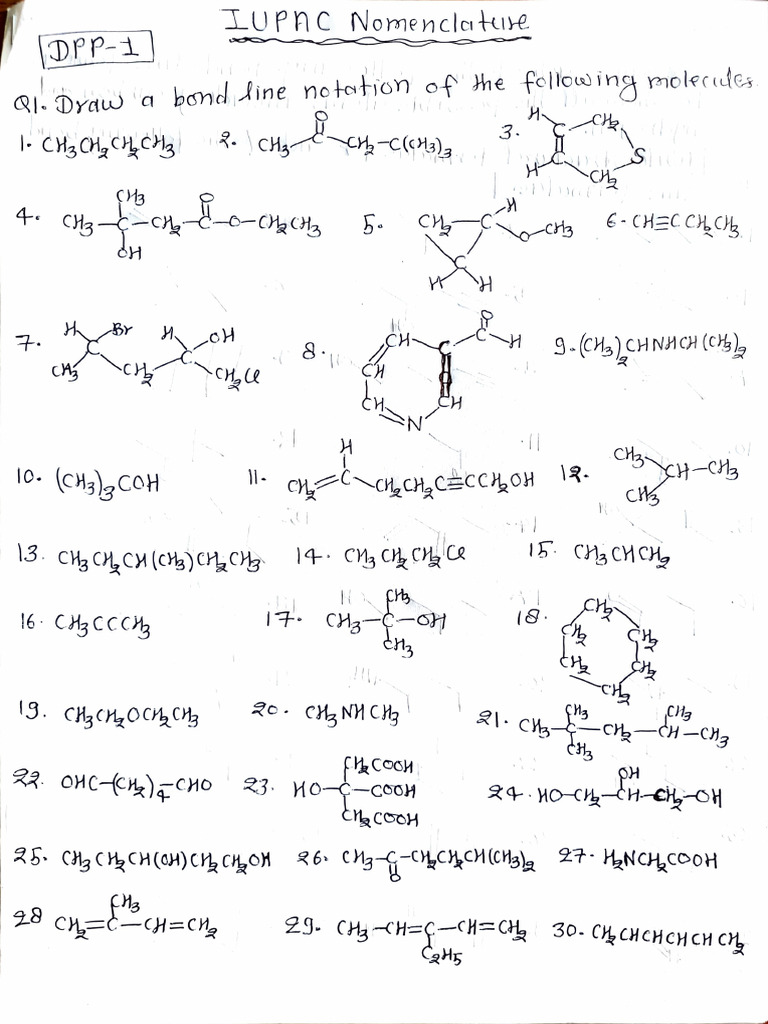 IUPAC Nomenclature
DPP-1
Q1. Draw a bond line notation of the following molecules.
1. CH3CH2CH2CH3 2. CH3-C(=O)-CH2-C(CH3)3 3. H C CH2 S CH2 C H
4. CH3-C(CH3)(OH)-CH2-C(=O)-O-CH2CH3 5. CH2 C H O-CH3 C H H 6. CH≡CCH2CH3
7. H Br C CH3 CH2 H OH C CH2Cl 8. CH C C O H CH CH N CH 9. (CH3)2CHNHCH(CH3)2
10. (CH3)3COH 11. CH2=C(H)-CH2CH2C≡CCH2OH 12. CH3 CH3 CH-CH3
13. CH3CH2CH(CH3)CH2CH3 14. CH3CH2CH2Cl 15. CH3CHCH2
16. CH3CCCH3 17. CH3-C(CH3)(CH3)-OH 18. CH2 CH2 CH2 CH2 CH2 CH2
19. CH3CH2OCH2CH3 20. CH3NHCH3 21. CH3-C(CH3)(CH3)-CH2-CH(CH3)-CH3
22. OHC-(CH2)4-CHO 23. HO-C(CH2COOH)(CH2COOH)-COOH 24. HO-CH2-CH(OH)-CH2-OH
25. CH3CH2CH(OH)CH2CH2OH 26. CH3-C(=O)-CH2CH2CH(CH3)2 27. H2NCH2COOH
28 CH2=C(CH3)-CH=CH2 29. CH3-CH=C(C2H5)-CH=CH2 30. CH2CHCHCHCHCH2